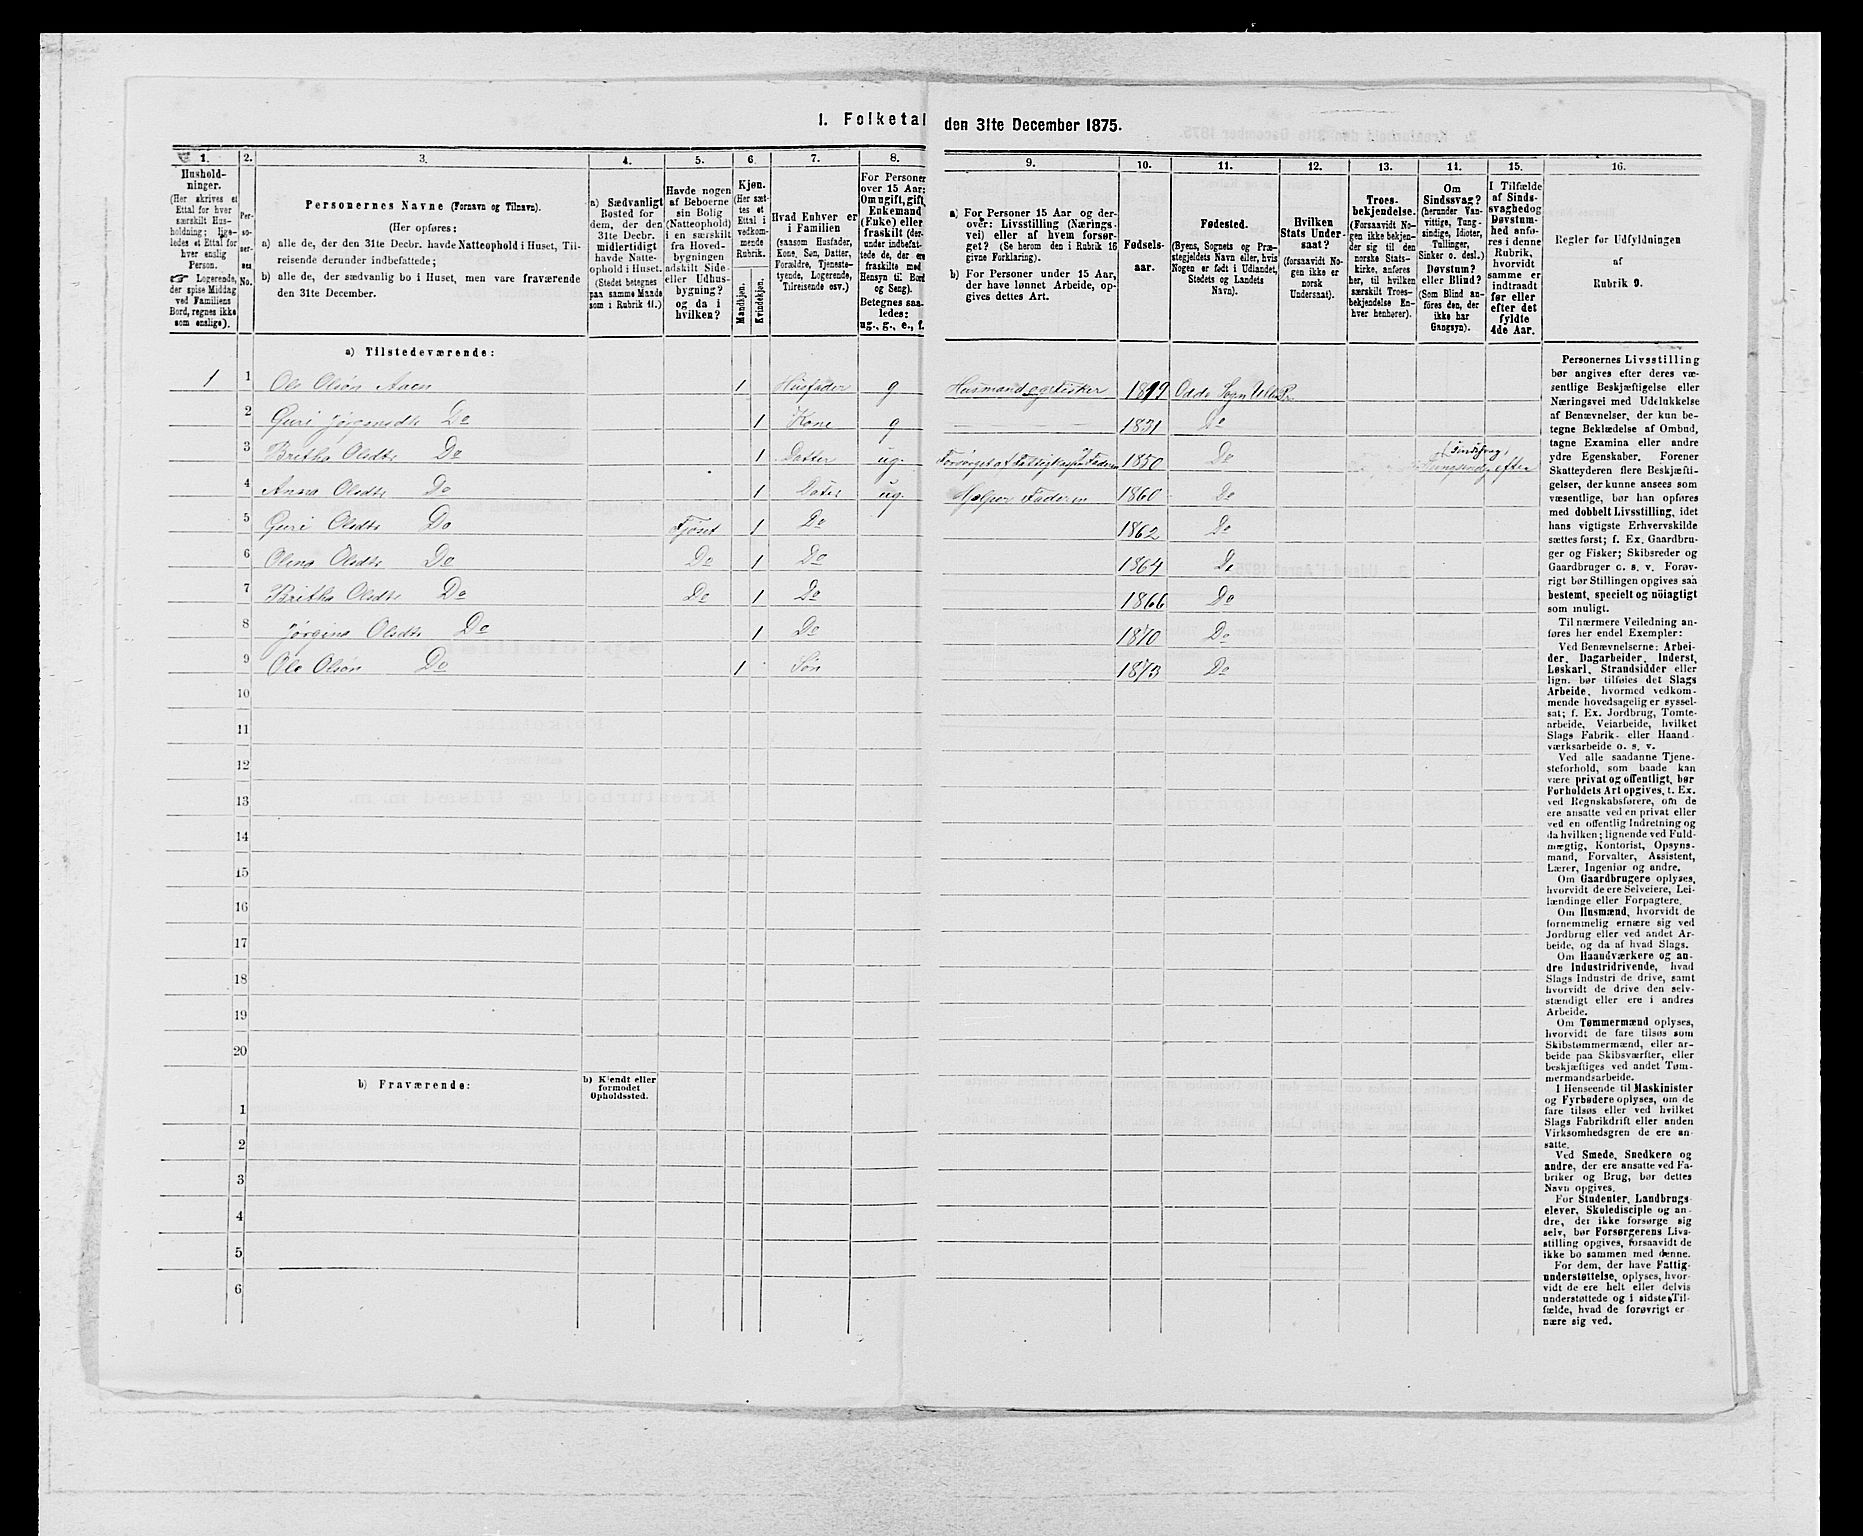 1. Folketal den 31te December 1875.
1. 2. 3. 4. 5. 6. 7. 8. 9. 10. 11. 12. 13. 14. 15. 16.
Hushold-
ninger.
(Her skrives et
Ettal for hver
særskilt Hus-
holdning; lige-
ledes et Ettal for
hver enslig
Person.
Logerende,
der spise Middag
ved Familiens
Bord, regnes ikke
som enslige).
Per-
so-
ner-
nes
No.
Personernes Navne (Fornavn og Tilnavn).
(Her opføres:
a) alle de, der den 31te Decbr. havde Natteophold i Huset, Til-
reisende derunder indbefattede;
b) alle de, der sædvanlig bo i Huset, men vare fraværende
den 31te December.
a) Sædvanligt
Bosted for
dem, der den
31te Decbr.
midlertidigt
havde Natte-
ophold i Huset.
(Stedet betegnes
paa samme Maade
som i Rubrik 11.)
Havde nogen
af Beboerne
sin Bolig
(Natteophold)
i en særskilt
fra Hoved-
bygningen
adskilt Side-
eller Udhus-
bygning?
og da i
hvilken?
Kjøn.
(Her sæt-
tes et
Ettal i
vedkom-
mende
Rubrik.
Mandkjøn.
Kvindekjøn.
Hvad Enhver er
i Familien
(saasom Husfader,
Kone, Søn, Datter,
Forældre, Tjeneste-
tyende, Logerende,
Tilreisende osv.)
For Personer
over 15 Aar:
Om ugift, gift,
Enkemand
(Enke) eller
fraskilt (der-
under indbefat-
tede de, der ere
fraskilte med
Hensyn til Bord
og Seng).
Betegnes saa-
ledes:
ug., g., e., f.
a) For Personer 15 Aar og der-
over: Livsstilling (Nærings-
vei) eller af hvem forsør-
get? (Se herom den i Rubrik 16
givne Forklaring).
b) For Personer under 15 Aar,
der have lønnet Arbeide, op-
gives dettes Art.
Fødsels-
aar.
Fødested.
(Byens, Sognets og Præ-
stegjeldets Navn eller, hvis
Nogen er født i Udlandet,
Stedets og Landets
Navn).
Hvilken
Stats Under-
saat?
(forsaavidt No-
gen ikke er
norsk
Undersaat).
Troes-
bekjendelse.
(Forsaavidt No-
gen ikke bekjen-
der sig til den
norske Stats-
kirke, anføres
her, til hvilken
særskilt Troes-
bekjendelse En-
hver henhører).
Om
Sindssvag?
(herunder Van-
vittige, Tung-
sindige, Idioter,
Tullinger,
Sinker o. desl.)
Døvstum?
eller Blind?
(Som Blind an-
føres den, der
ikke har
Gangsyn).
I Tilfælde
af Sinds-
svaghed og
Døvstum-
hed anfø-
res i denne
Rubrik,
hvorvidt
samme er
indtraadt
før eller
efter det
fyldte
4de Aar.
Regler for Udfyldningen
af
Rubrik 9.
a) Tilstedeværende:
1 1 Ole Olsøn Aaen 1 Husfader g Husmand og Fisker 1819 Odde Sogn Ull. Pr.
2 Guri Jørgensdtr Do 1 Kone g 1831 Do
3 Britha Olsdtr Do 1 Datter ug. Forsørget af Fattigkassen Faderen 1850 Do (Sindssvag) Tungsindig efter
4 Anna Olsdtr Do 1 Datter ug. Hjelper Faderen 1860 Do
5 Guri Olsdtr Do Fjøset 1 Do 1862 Do
6 Olena Olsdtr Do Do 1 Do 1864 Do
7 Britha Olsdtr Do Do 1 Do 1866 Do
8 Jørgina Olsdtr Do 1 Do 1870 Do
9 Ole Olsøn Do 1 Søn 1873 Do
10
11
12
13
14
15
16
17
18
19
20
b) Fraværende:
b) Kjendt eller
formodet
Opholdssted.
1
2
3
4
5
6
Personernes Livsstilling
bør angives efter deres væ-
sentlige Beskjæftigelse eller
Næringsvei med Udelukkelse
af Benævnelser, der kun be-
tegne Beklædelse af Ombud,
tagne Examina eller andre
ydre Egenskaber. Forener
Skatteyderen flere Beskjæfti-
gelser, der kunne ansees som
væsentlige, bør han opføres
med dobbelt Livsstilling, idet
hans vigtigste Erhvervskilde
sættes først; f. Ex. Gaardbru-
ger og Fisker; Skibsreder og
Gaardbruger o. s. v. Forøv-
rigt bør Stillingen opgives saa
bestemt, specielt og nöiagtigt
som muligt.
Til nærmere Veiledning an-
føres her endel Exempler:
Ved Benævnelserne: Arbei-
der, Dagarbeider, Inderst,
Løskarl, Strandsidder eller
lign. bør tilføies det Slags
Arbeide, hvormed vedkom-
mende hovedsagelig er syssel-
sat; f. Ex. Jordbrug, Tomte-
arbeide, Veiarbeide, hvilket
Slags Fabrik- eller Haand
værksarbeide o. s. v.
Ved alle saadanne Tjene-
steforhold, som baade kan
være privat og offentligt, bør
Forholdets Art opgives, t. Ex.
ved Regnskabsførere, om de
ere ansatte ved en privat eller
ved en offentlig Indretning og
da hvilken; lignende ved Fuld-
mægtig, Kontorist, Opsyns-
mand, Forvalter, Assistent,
Lærer, Ingeniør og andre.
Om Gaardbrugere oplyses,
hvorvidt de ere Selveiere, Lei-
lændinge eller Forpagtere.
Om Husmænd, hvorvidt de
fornemmelig ernære sig ved
Jordbrug eller ved andet Ar-
beide, og da af hvad Slags.
Om Haandværkere og an-
dre Industridrivende, hvad
Slags Industri de drive, samt
hvorvidt de drive den selv-
stændigt eller ere i andres
Arbeide.
Om Tømmermænd oplyses,
hvorvidt de fare tilsøs som
Skibstømmermænd, eller ar-
beide paa Skibsværfter, eller
beskjæftiges ved andet Tøm-
mermandsarbeide.
I Henseende til Maskinister
og Fyrbødere oplyses, om de
fare tilsøs eller ved hvilket
Slags Fabrikdrift eller anden
Virksomhedsgren de ere an-
satte.
Ved Smede, Snedkere og
andre, der ere ansatte ved Fa-
briker og Brug, bør dettes
Navn opgives.
For Studenter, Landbrugs
elever, Skoledisciple og an-
dre, der ikke forsørge sig
selv, bør Forsørgerens Livs-
stilling opgives, forsaavidt de
ikke bo sammen med denne.
For dem, der have Fattig-
understøttelse, oplyses, hvor-
vidt de ere helt eller delvis
understøttede og i sidste Til-
fælde, hvad de forøvrigt er
nære sig ved.